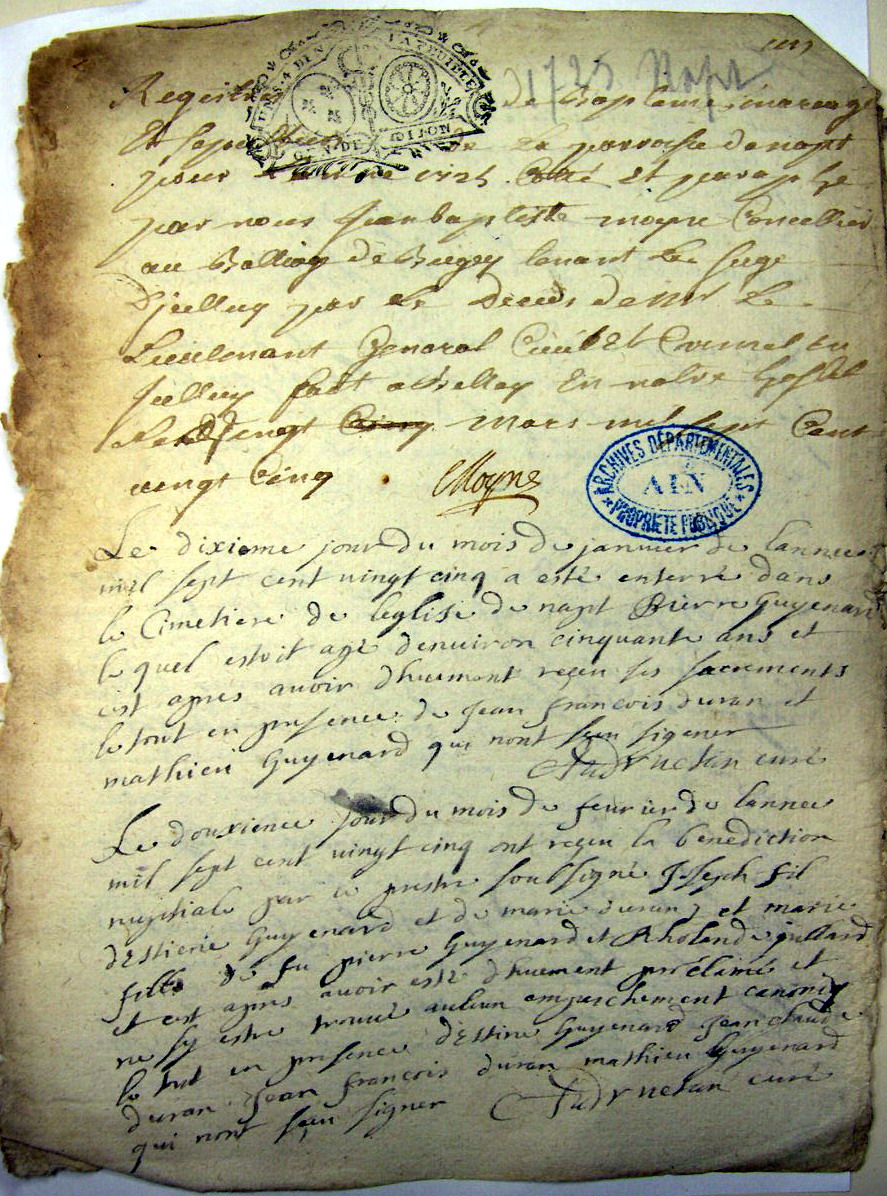 1725 Napt
Registre de Baptemes mariage
Et sepultures de La parroisse de napt
pour L'année 1725 Cotté Et paraphé
par nous Jean baptiste moyne Conceillier
au Balliage de Bugey tenant Le siege
Dicelluy par Le Deces de Mr Le
Lieutenant General Civil Et Criminel en
Icelluy fait a Belley En notre hostel
Le vingt Cinq mars mil sept Cent
vingt Cinq Moyne
ARCHIVES DÉPARTEMENTALES
AIN
PROPRIÉTÉ PUBLIQUE
Le dixieme jour du mois de janvier de lannee
mil sept cent vingt cinq a esté enterré dans
le Cimetiere de leglise de napt Pierre Guyenard
lequel estoit agé denviron cinquante ans et
cest apres avoir dhuement reçeu ses sacrements
le tout en presence de Jean francois duran et
mathieu Guyenard qui nont sceu signer
curé
Le douxieme jour du mois de feuvrier de lannee
mil sept cent vingt cinq ont reçeu la benediction
nuptiale par le prestre soubsigné Joseph fil
dEstiene Guyenard et de marie duran et marie
fille de fu pierre Guyenard et Rholande jullard
et cest apres avoir esté dhuement proclamé et
ne sy estre trouvé aulcun empeschement canoniq
le tout en presence dEstine Guyenard Jean claude
duran Jean francois duran mathieu Guyenard
qui nont sceu signer curé